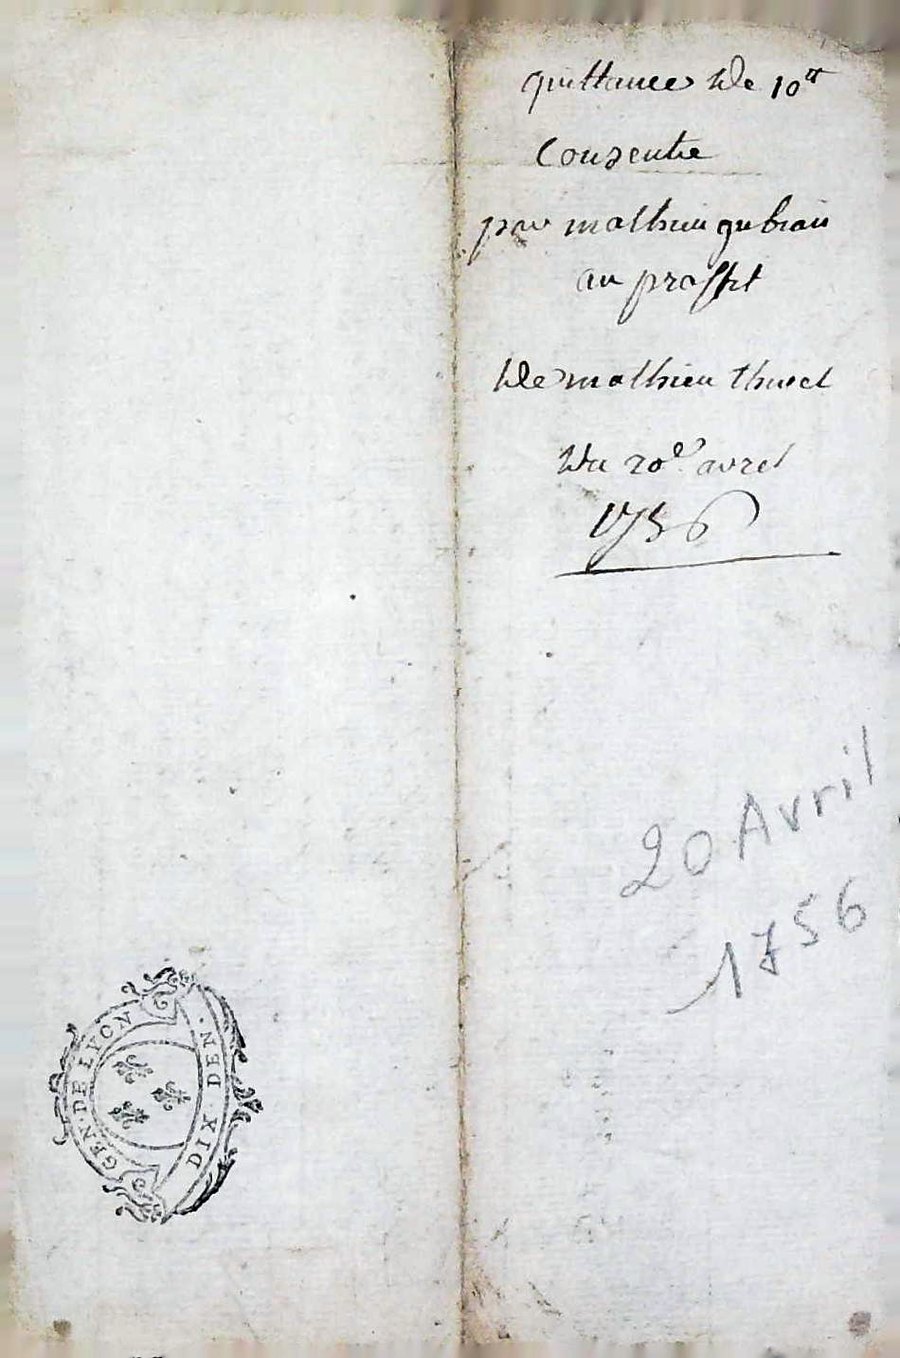 quittance De 10ᵗᵗ
Consentie
par mathieu gubian
au proffit
De mathieu thivel
Du 20e avrel
1756
20 Avril
1756
GEN · DE LYON
DIX DEN ·